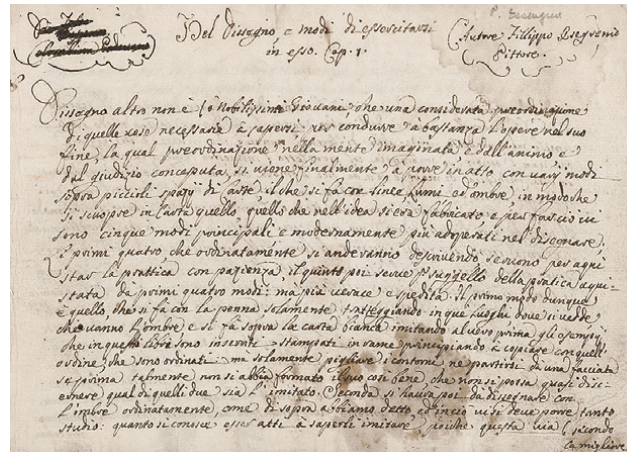 P. Esengren
Del Dissegno e modi di essercitarsi
in esso. Cap. 1.
Autore Filippo Esegrenio
Pittore.
Dissegno altro non è (ò Nobilissimi Giovani) che una considerata preordinazione
di quelle cose necessarie à sapersi per condurre à bastanza l'opere nel suo
fine, la qual preordinazione nella mente imaginata e dall'animo e
dal giudizio conceputa, si viene finalmente à porre in atto con varij modi
sopra piccioli spazij di carte il che si fà con linee lumi ed ombre in modo che
si scuopre in Carta quello, quello che nell'idea si era fabricato e per far ciò vi
sono cinque modi principali e modernamente più adoperati nel disegnare,
i primi quatro che ordinatamente si anderanno descrivendo servono per aqui
star la prattica con pazienza il quinto poi serve p suggello della pratica aqui-
stata da primi quatro modi: ma più verace e spedita. Il primo modo dunque
è quello, che si fà con la penna solamente tratteggiando in que luoghi dove si vede
che vanno l'ombre e si fà sopra la carta bianca imitando al vero prima gli esempij
che in questo libro sono inseriti e stampati in rame principiando à copiare con quell'
ordine, che sono ordinati: ma solamente pigliare i contorni ne partirsi da una facciata
se prima talmente non si abbia formato il suo così bene che non si possa quasi disc-
ernere qual di quelli due sia l'imitato. Seconda si haurà poi da dissegnare con
l'ombre ordinatamente, come di sopra abbiamo detto, ed in ciò vi si deve porre tanto
studio: quanto si conosce esser atti à saperli imitare, poiche questa via
secondo
migliore